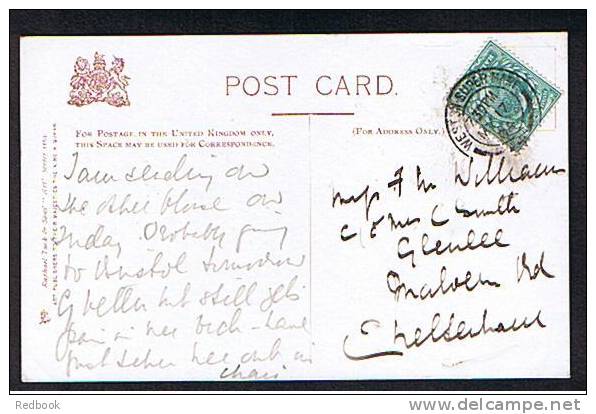 POST CARD.
FOR POSTAGE IN THE UNITED KINGDOM ONLY,
THIS SPACE MAY BE USED FOR CORRESPONDENCE.
(FOR ADDRESS ONLY.)
I am sending on
the other blouse on
Friday. Probably going
to Bristol tomorrow
G better but still gets
pain in her back – have
just taken her out in
chair
Miss F M Williams
C/o Mrs C Smith
Glenlee
Malvern Rd
Cheltenham
WESTON SUPER MARE
Raphael Tuck & Sons'
ART PUBLISHERS TO THEIR MAJESTIES THE KING & QUEEN
Redbook
©delcampe.net